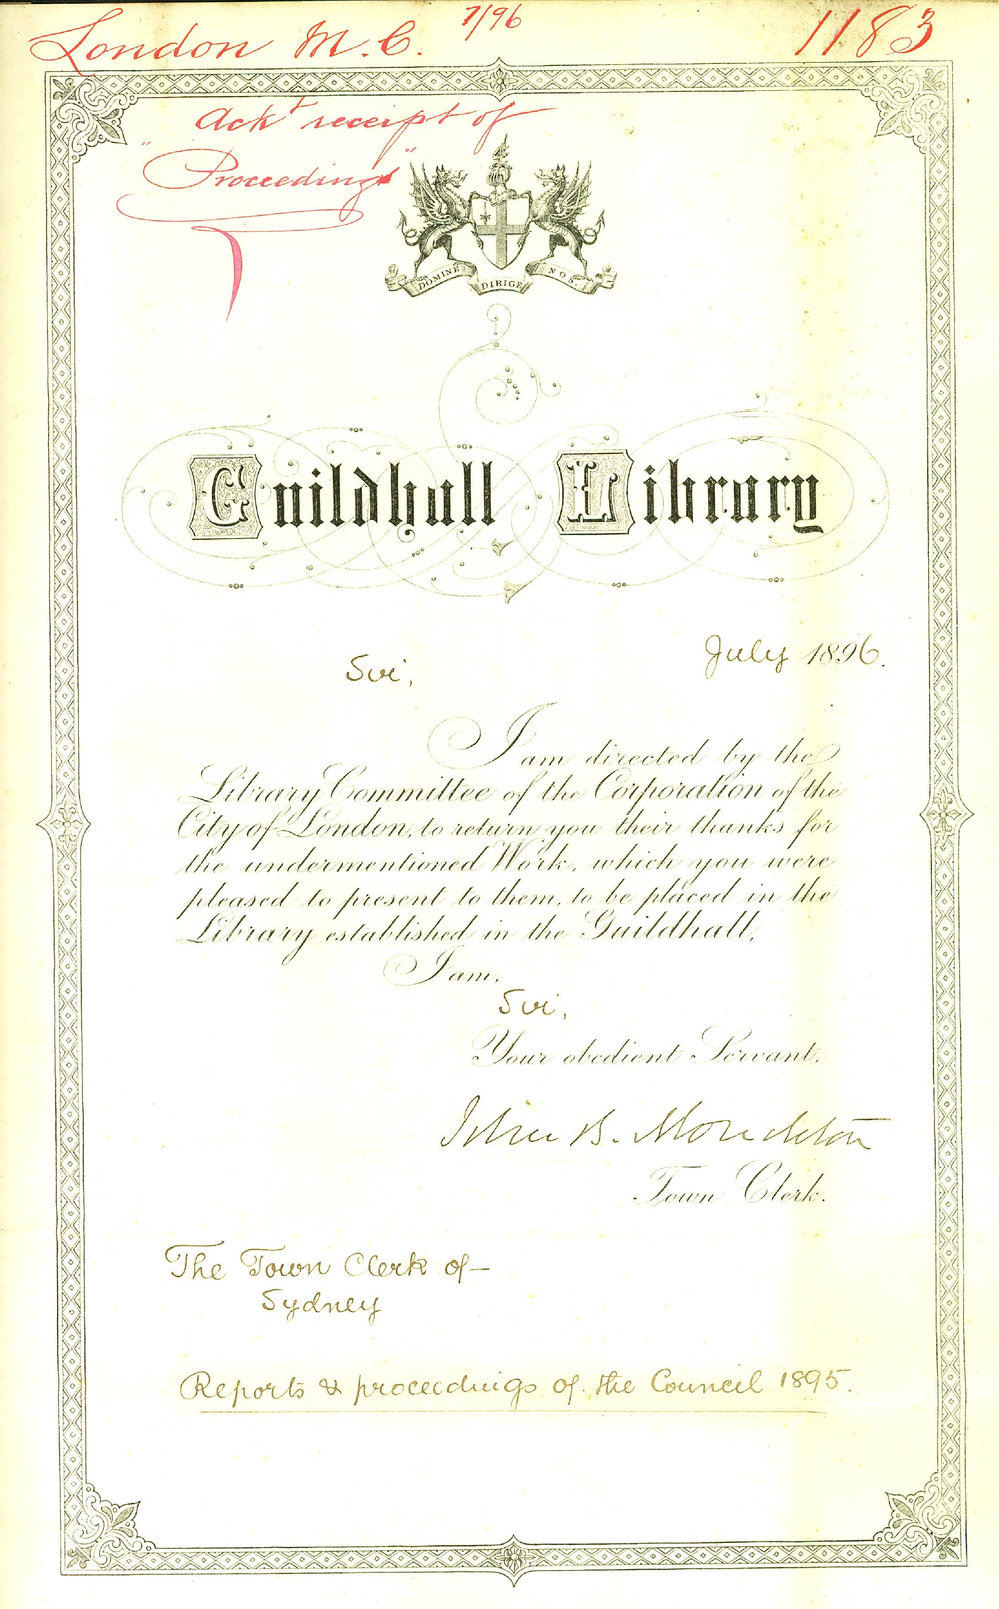 London M. C. 7/96 1183
Ackt receipt of
"Proceedings"
DOMINE DIRIGE NOS.
Guildhall Library
July 1896.
Sir,
I am directed by the
Library Committee of the Corporation of the
City of London, to return you their thanks for
the undermentioned Work, which you were
pleased to present to them, to be placed in the
Library established in the Guildhall.
I am,
Sir,
Your obedient Servant,
John B. Monckton
Town Clerk.
The Town Clerk of
Sydney
Reports & proceedings of the Council 1895.